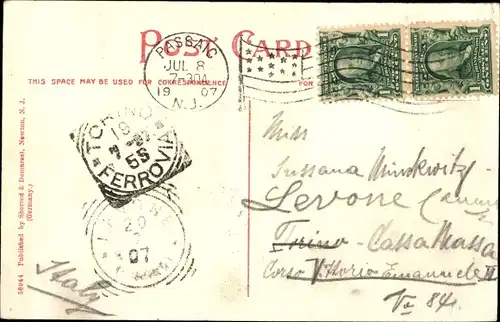 POST CARD
THIS SPACE MAY BE USED FOR CORRESPONDENCE
FOR
PASSAIC
JUL 8
7-30A
1907
N.J.
TORINO
19
5S
FERROVIA
20
07
Miss
Sussana Minskwitz
Levone
Torino - Cassa Massa
Corso Vittorio Emanuele II
No 84.
Italy
56944 Published by Sherred & Demarest, Newton, N. J.
(Germany.)